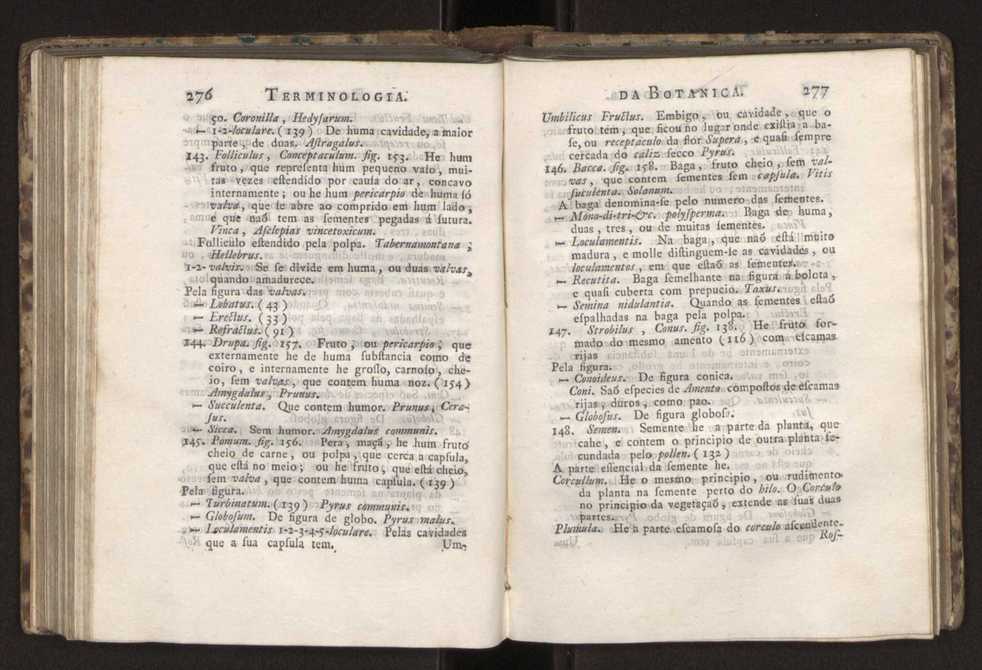 276 TERMINOLOGIA.
50. Coronilla, Hedyſarum.
— 1-2-loculare. (139) De huma cavidade, a maior
parte de duas. Aſtragalus.
143. Folliculus, Conceptaculum. fig. 153. He hum
fruto, que repreſenta hum pequeno vaſo, mui-
tas vezes eſtendido por cauſa do ar, concavo
internamente; ou he hum pericarpio de huma ſó
valva, que ſe abre ao comprido em hum lado,
e que naõ tem as ſementes pegadas á ſutura.
Vinca, Aſclepias vincetoxicum.
Folliculo eſtendido pela polpa. Tabernamontana;
Hellebrus.
1-2-valvis. Se ſe divide em huma, ou duas valvas,
quando amadurece.
Pela figura das valvas.
— Lobatus. (43)
— Erectus. (33)
— Refractus. (91)
144. Drupa. fig. 157. Fruto, ou pericarpio, que
externamente he de huma ſubſtancia como de
coiro, e internamente he groſſo, carnoſo, che-
io, ſem valvas, que contem huma noz. (154)
Amygdalus, Prunus.
— Succulenta. Que contem humor. Prunus, Cera-
ſus.
— Sicca. Sem humor. Amygdalus communis.
145. Pomum. fig. 156. Pera, maçã, he hum fruto
cheio de carne, ou polpa, que cerca a capſula,
que eſtá no meio; ou he fruto, que eſtá cheio,
ſem valva, que contem huma capſula. (139)
Pela figura.
— Turbinatum. (139) Pyrus communis.
— Globoſum. De figura de globo. Pyrus malus.
— Loculamentis 1-2-3-4-5-loculare. Pelas cavidades
que a ſua capſula tem.
Um-
DA BOTANICA. 277
Umbilicus Fructus. Embigo, ou cavidade, que o
fruto tem, que ficou no lugar onde exiſtia a ba-
ſe, ou receptaculo da flor Supera, e quaſi ſempre
cercada do caliz ſecco Pyrus.
146. Bacca. fig. 158. Baga, fruto cheio, ſem val-
vas, que contem ſementes ſem capſula. Vitis
ſuculenta. Solanum.
A baga denomina-ſe pelo numero das ſementes.
— Mono-di-tri-&c. polyſperma. Baga de huma,
duas, tres, ou de muitas ſementes.
— Loculamentis. Na baga, que naõ eſtá muito
madura, e molle diſtinguem-ſe as cavidades, ou
loculamentos, em que eſtaõ as ſementes.
— Recutita. Baga ſemelhante na figura á bolota,
e quaſi cuberta com prepucio. Taxus.
— Semina nidulantia. Quando as ſementes eſtaõ
eſpalhadas na baga pela polpa.
147. Strobilus, Conus. fig. 138. He fruto for-
mado do mesmo amento (116) com eſcamas
rijas
Pela figura.
— Conoideus. De figura conica.
Coni. Saõ eſpecies de Amento compoſtos de eſcamas
rijas, duros, como pao.
— Globoſus. De figura globoſa.
148. Semen. Semente he a parte da planta, que
cahe, e contem o principio de outra planta fe-
cundada pelo pollen. (132)
A parte eſſencial da ſemente he.
Corcullum. He o meſmo principio, ou rudimento
da planta na ſemente perto do hilo. O Corculo
no principio da vegetaçaõ, extende as ſuas duas
partes.
Plumula. He a parte eſcamoſa do corculo aſcendente.
Roſ-